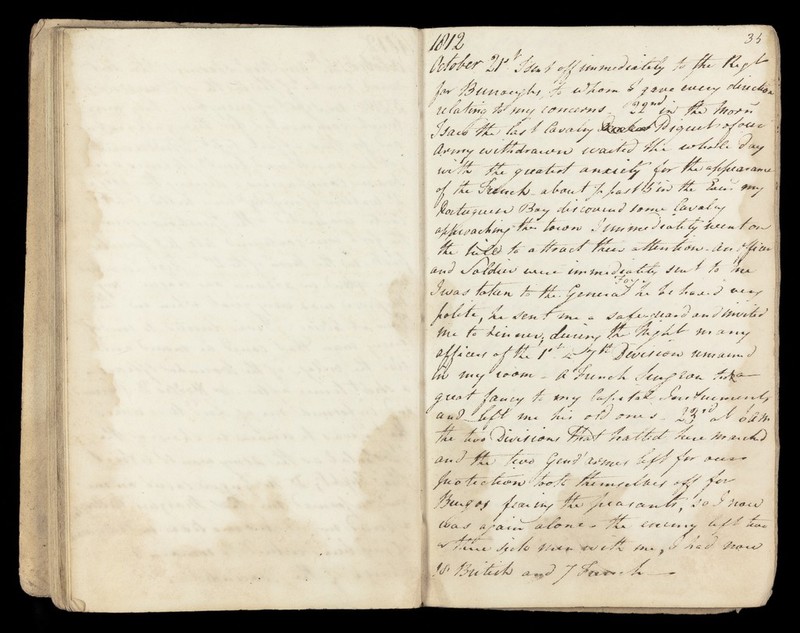 1812
35
October 21st I sent off immediately to the Regt
for Burroughs to whom I gave every direction
relating to my concerns - 22nd in the Morn
I saw the last Cavalry Piquet of our
Army withdrawn waited the whole day
with the greatest anxiety for the appearance
of the French - about past in the Eveg my
Portuguese Boy discovered some Cavalry
approaching the town I immediately went on
the hill to attract their attention - an officer
and Soldier were immediately sent to me
I was taken to the General Foy he behaved very
polite, he sent me a safe guard and invited
me to dinner, during the Night many
officers of the 1st & Division remained
in my room - A French Surgeon took a
great fancy to my Capital Instruments
and left me his old ones - 23rd at 6 am
the two Divisions that halted here marched
and the two Gend'armes left for our
protection took themselves off for
Burgos fearing the peasants, so I now
was again alone - the enemy left two
or three sick men with me, I had now
British and 7 French -